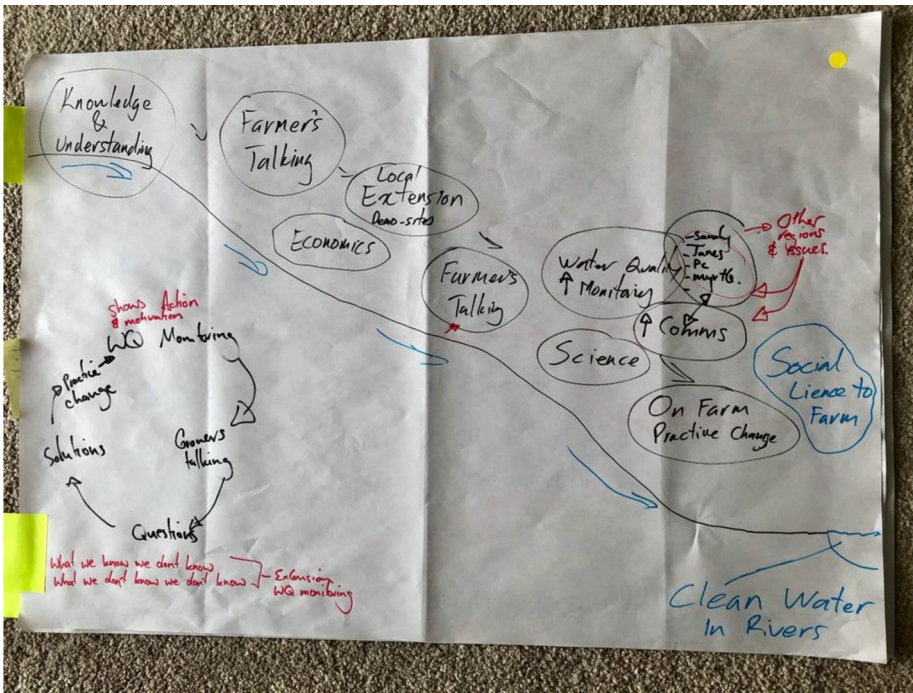 Knowledge
&
Understanding
Farmer's
Talking
Local
Extension
Demo-sites
Economics
Farmer's
Talking
Water Quality
↑ Monitoring
-Sandy
-James
-Pc
-myrtle.
Other
regions
& issues.
↑ Comms
Science
On Farm
Practive Change
Social
Lience to
Farm
Clean Water
In Rivers
shows Action
& motivation
WQ Monitoring
Growers
talking
Questions
Solutions
Practice
change
What we know we dont know
What we don't know we don't know
Extension
WQ monitoring